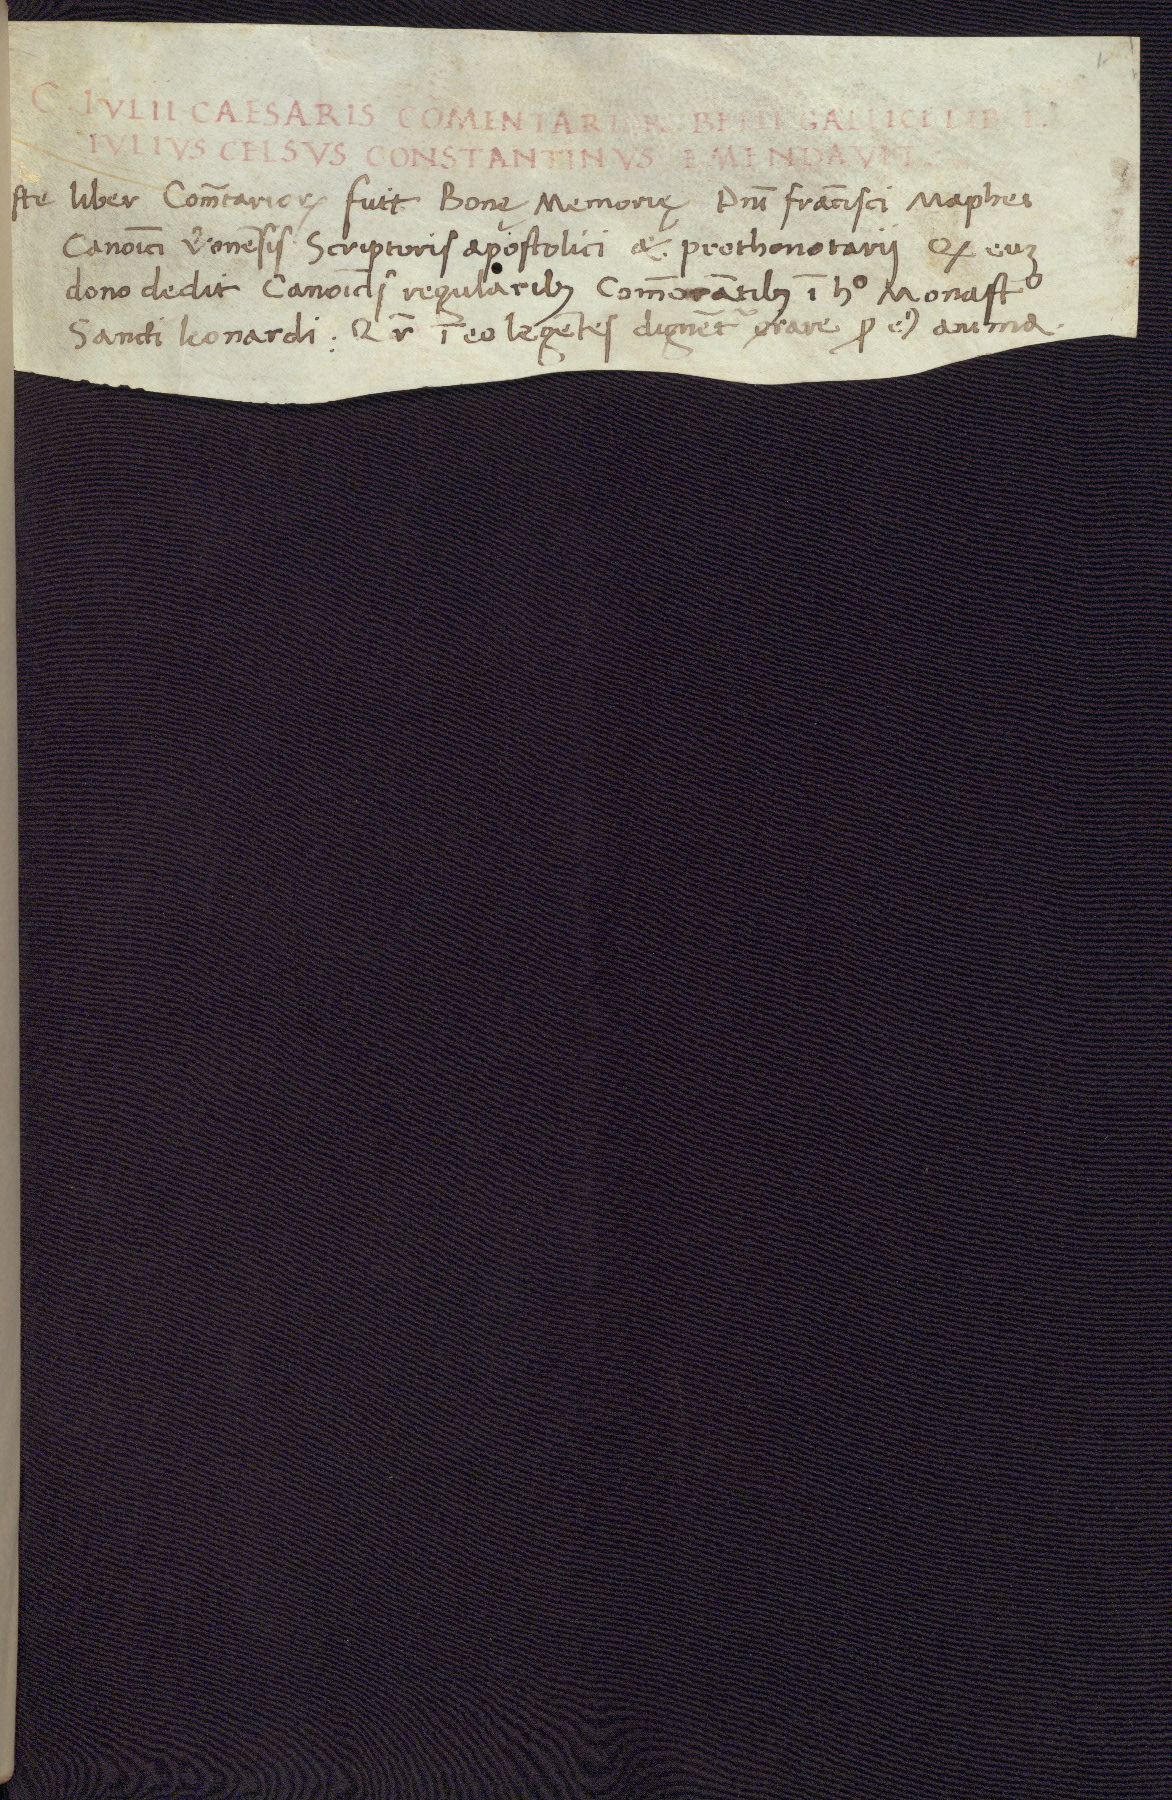 C. IVLII CAESARIS COMENTARIOR BELLI GALLICI LIB. I.
IVLIVS CELSVS CONSTANTINVS EMENDAVIT
ste liber Com̄tarioꝝ fuit Bonę Memorię Dn̄i frācisci Maphei
Canoīci V̓onēsis Scriptoris apostolici &. prothonotarii Q eūꝫ
dono dedit Canoīcis regularibꝫ Com̄orātibꝫ ī hº Monastº
Sancti leonardi: Q r̄ ī eo legētes dignēt᷑ orare ꝓ eꝰ anima.